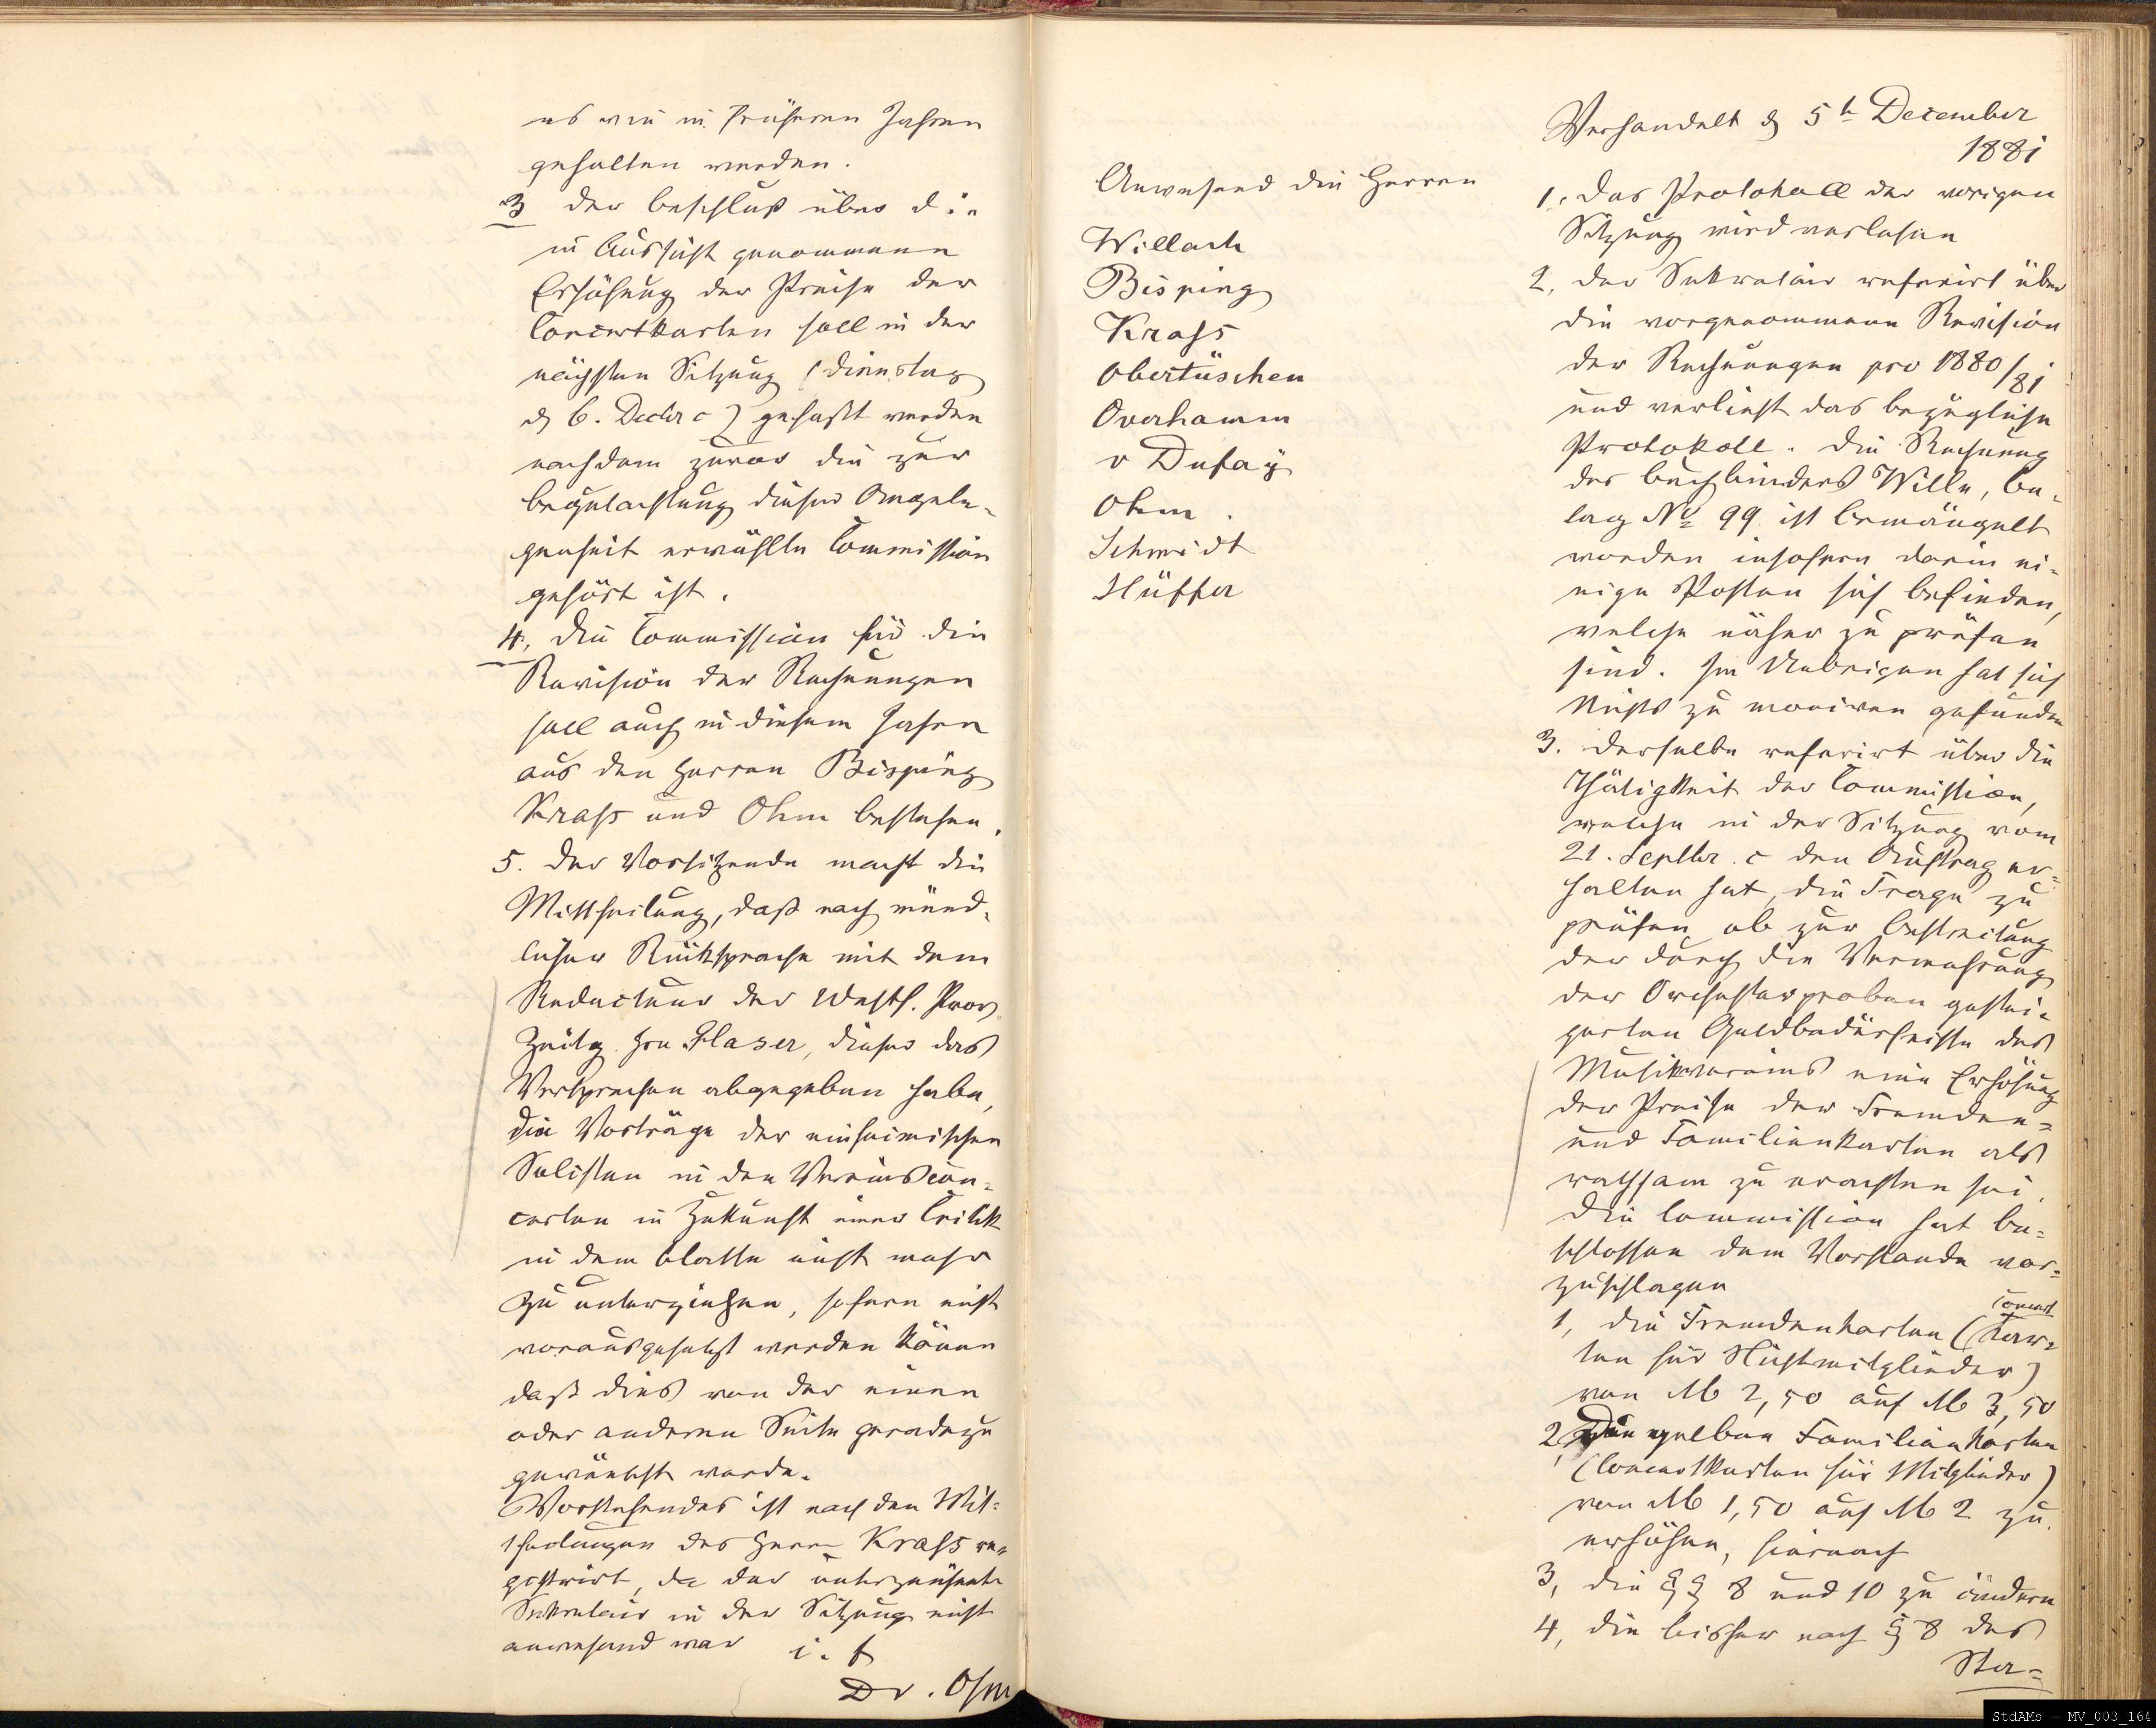 es wie in früheren Jahren
gehalten werden.
3 der Beschluß über die
in Aussicht genommene
Erhöhung der Preise der
Concertkarten soll in der
nächsten Sitzung (Dienstag
d 6. Decbr c) gefaßt werden
nachdem zuvor die zur
Begutachtung dieser Angele-
genheit erwählte Commission
gehört ist.
4, Die Commission für die
Revision der Rechnungen
soll auch in diesem Jahre
aus den Herren Bisping
Krass und Ohm bestehen.
5. Der Vorsitzende macht die
Mittheilung, daß nach münd-
licher Rücksprache mit dem
Redacteur der Westf. Prov
Zeitg. Hrn Glaser, dieser das
Versprechen abgegeben habe,
die Vorträge der einheimischen
Solisten in den Vereinscon-
certen in Zukunft einer Critik
in dem Blatte nicht mehr
zu unterziehen, sofern nicht
vorausgesetzt werden könne
daß dies von der einen
oder anderen Seite geradezu
gewünscht werde.
Vorstehendes ist nach den Mit-
theilungen des Herrn Krass re-
gistrirt, da der unterzeichnete
Sekretair in der Sitzung nicht
anwesend war i. f
Dr. Ohm
Anwesend die Herren
Willach
Bisping
Krass
Obertüschen
Overhamm
v Dufay
Ohm.
Schmidt
Hüffer
Verhandelt d 5t December
1881
1. Das Protokoll der vorigen
Sitzung wird verlesen
2, der Sekretair referirt über
die vorgenommene Revision
der Rechnungen pro 1880/81
und verliest das bezügliche
Protokoll. Die Rechnung
des Buchbinders Wille, Be-
lag No 99 ist bemängelt
worden insofern darin ei-
nige Posten sich befinden,
welche näher zu prüfen
sind. Im Uebrigen hat sich
Nichts zu moniren gefunden
3. Derselbe referirt über die
Thätigkeit der Commission,
welche in der Sitzung vom
21. Septbr. c den Auftrag er-
halten hat, die Frage zu
prüfen ob zur Bestreitung
der durch die Vermehrung
der Orchesterproben gestei-
gerten Geldbedürfnisse des
Musikvereins eine Erhöhung
der Preise der Fremden-
und Familienkarten als
rathsam zu erachten sei.
Die Commission hat be-
schlossen dem Vorstande vor-
zuschlagen
1, die Fremdenkarten (Concert Kar-
ten für Nichtmitglieder)
von M 2,50 auf M 3,50
2, Die gelben Familienkarten
(Concertkarten für Mitglieder)
von M 1,50 auf M 2 zu
erhöhen, hiernach
3, die §§ 8 und 10 zu ändern
4, die bisher nach § 8 des
Sta-
StdAMs - MV_003_164